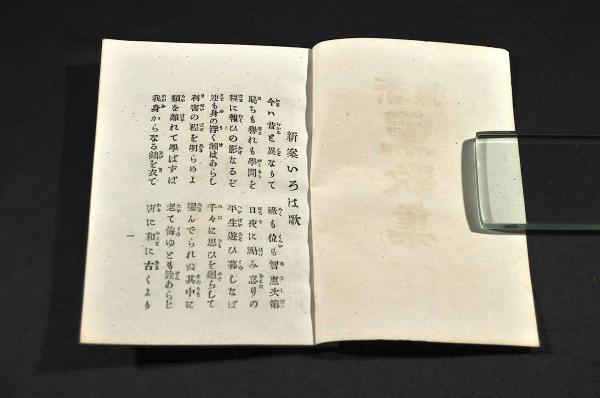 新案いろは歌
今ハ昔と異なりて　祿も位も智惠次第
恥ちも譽れも學問を　日夜に勵み怠りの
程に報ひの影なるぞ　平生遊び暮しなば
迚も身の浮く瀬はあらし　千々に思ひを廻らして
利害の程を明らめよ　擢んでられぬ其中に
類を離れて學ばずば　老て悔ゆとも詮あらじ
我身からなる錆を衣て　唐に和に古くより
一